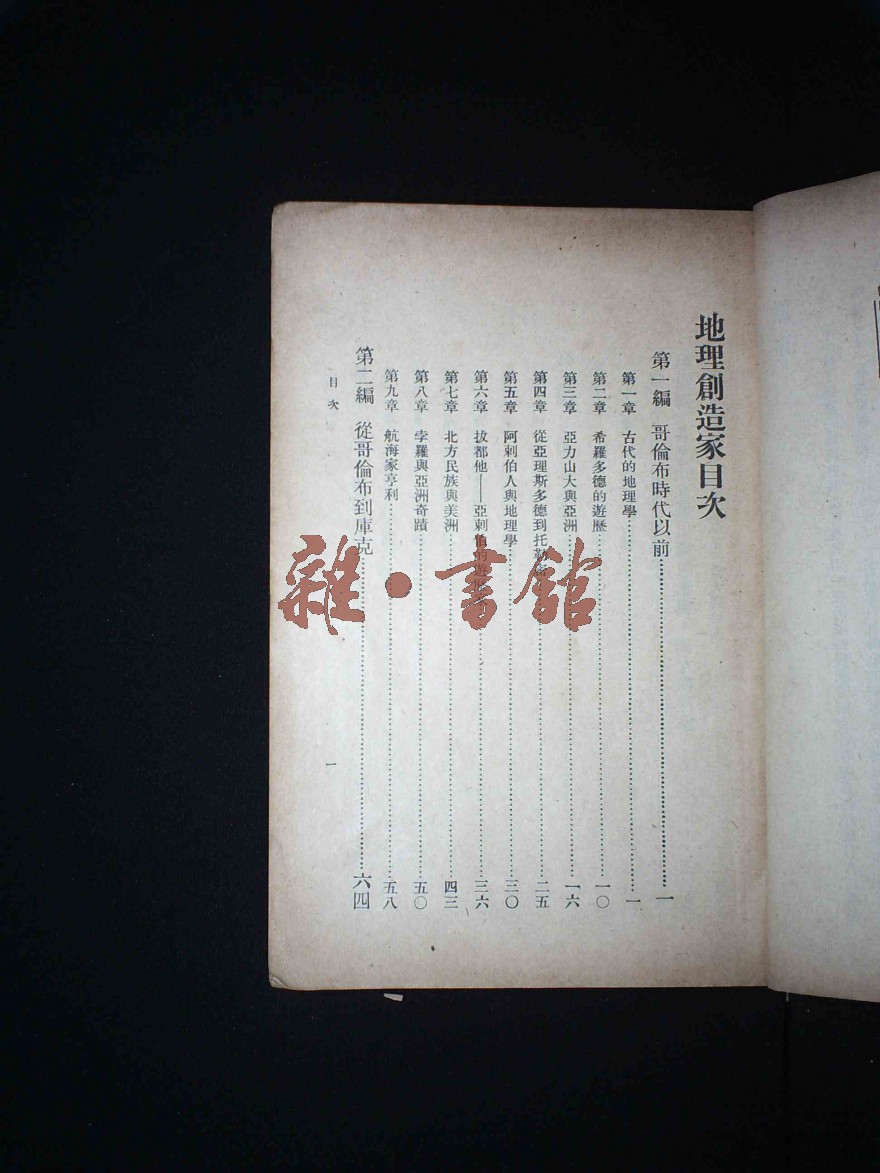 地理創造家目次
第一編 哥倫布時代以前……一
第一章 古代的地理學……一
第二章 希羅多德的遊歷……一〇
第三章 亞力山大與亞洲……一六
第四章 從亞理斯多德到托勒……二五
第五章 阿剌伯人與地理學……三〇
第六章 拔都他——亞剌伯的遊……三六
第七章 北方民族與美洲……四三
第八章 孛羅與亞洲奇蹟……五〇
第九章 航海家亨利……五八
第二編 從哥倫布到庫克……六四
目次
一
雜·書館